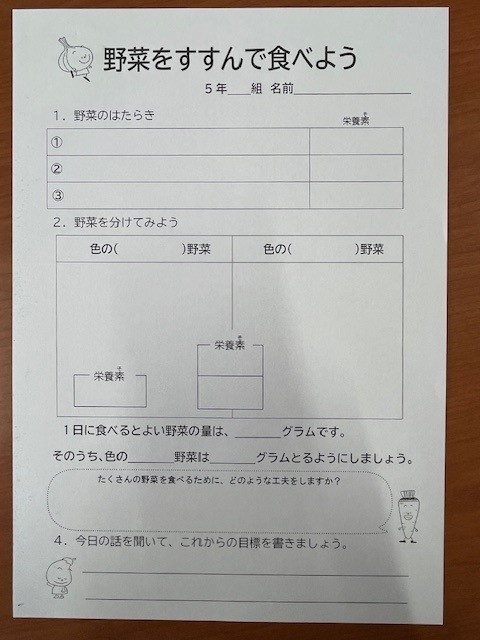 野菜をすすんで食べよう
5年___組 名前____________
1. 野菜のはたらき
栄養素
そ
①
②
③
2. 野菜を分けてみよう
色の( )野菜 色の( )野菜
栄養素
そ
栄養素
そ
1日に食べるとよい野菜の量は、______グラムです。
そのうち、色の______野菜は______グラムとるようにしましょう。
たくさんの野菜を食べるために、どのような工夫をしますか?
4. 今日の話を聞いて、これからの目標を書きましょう。